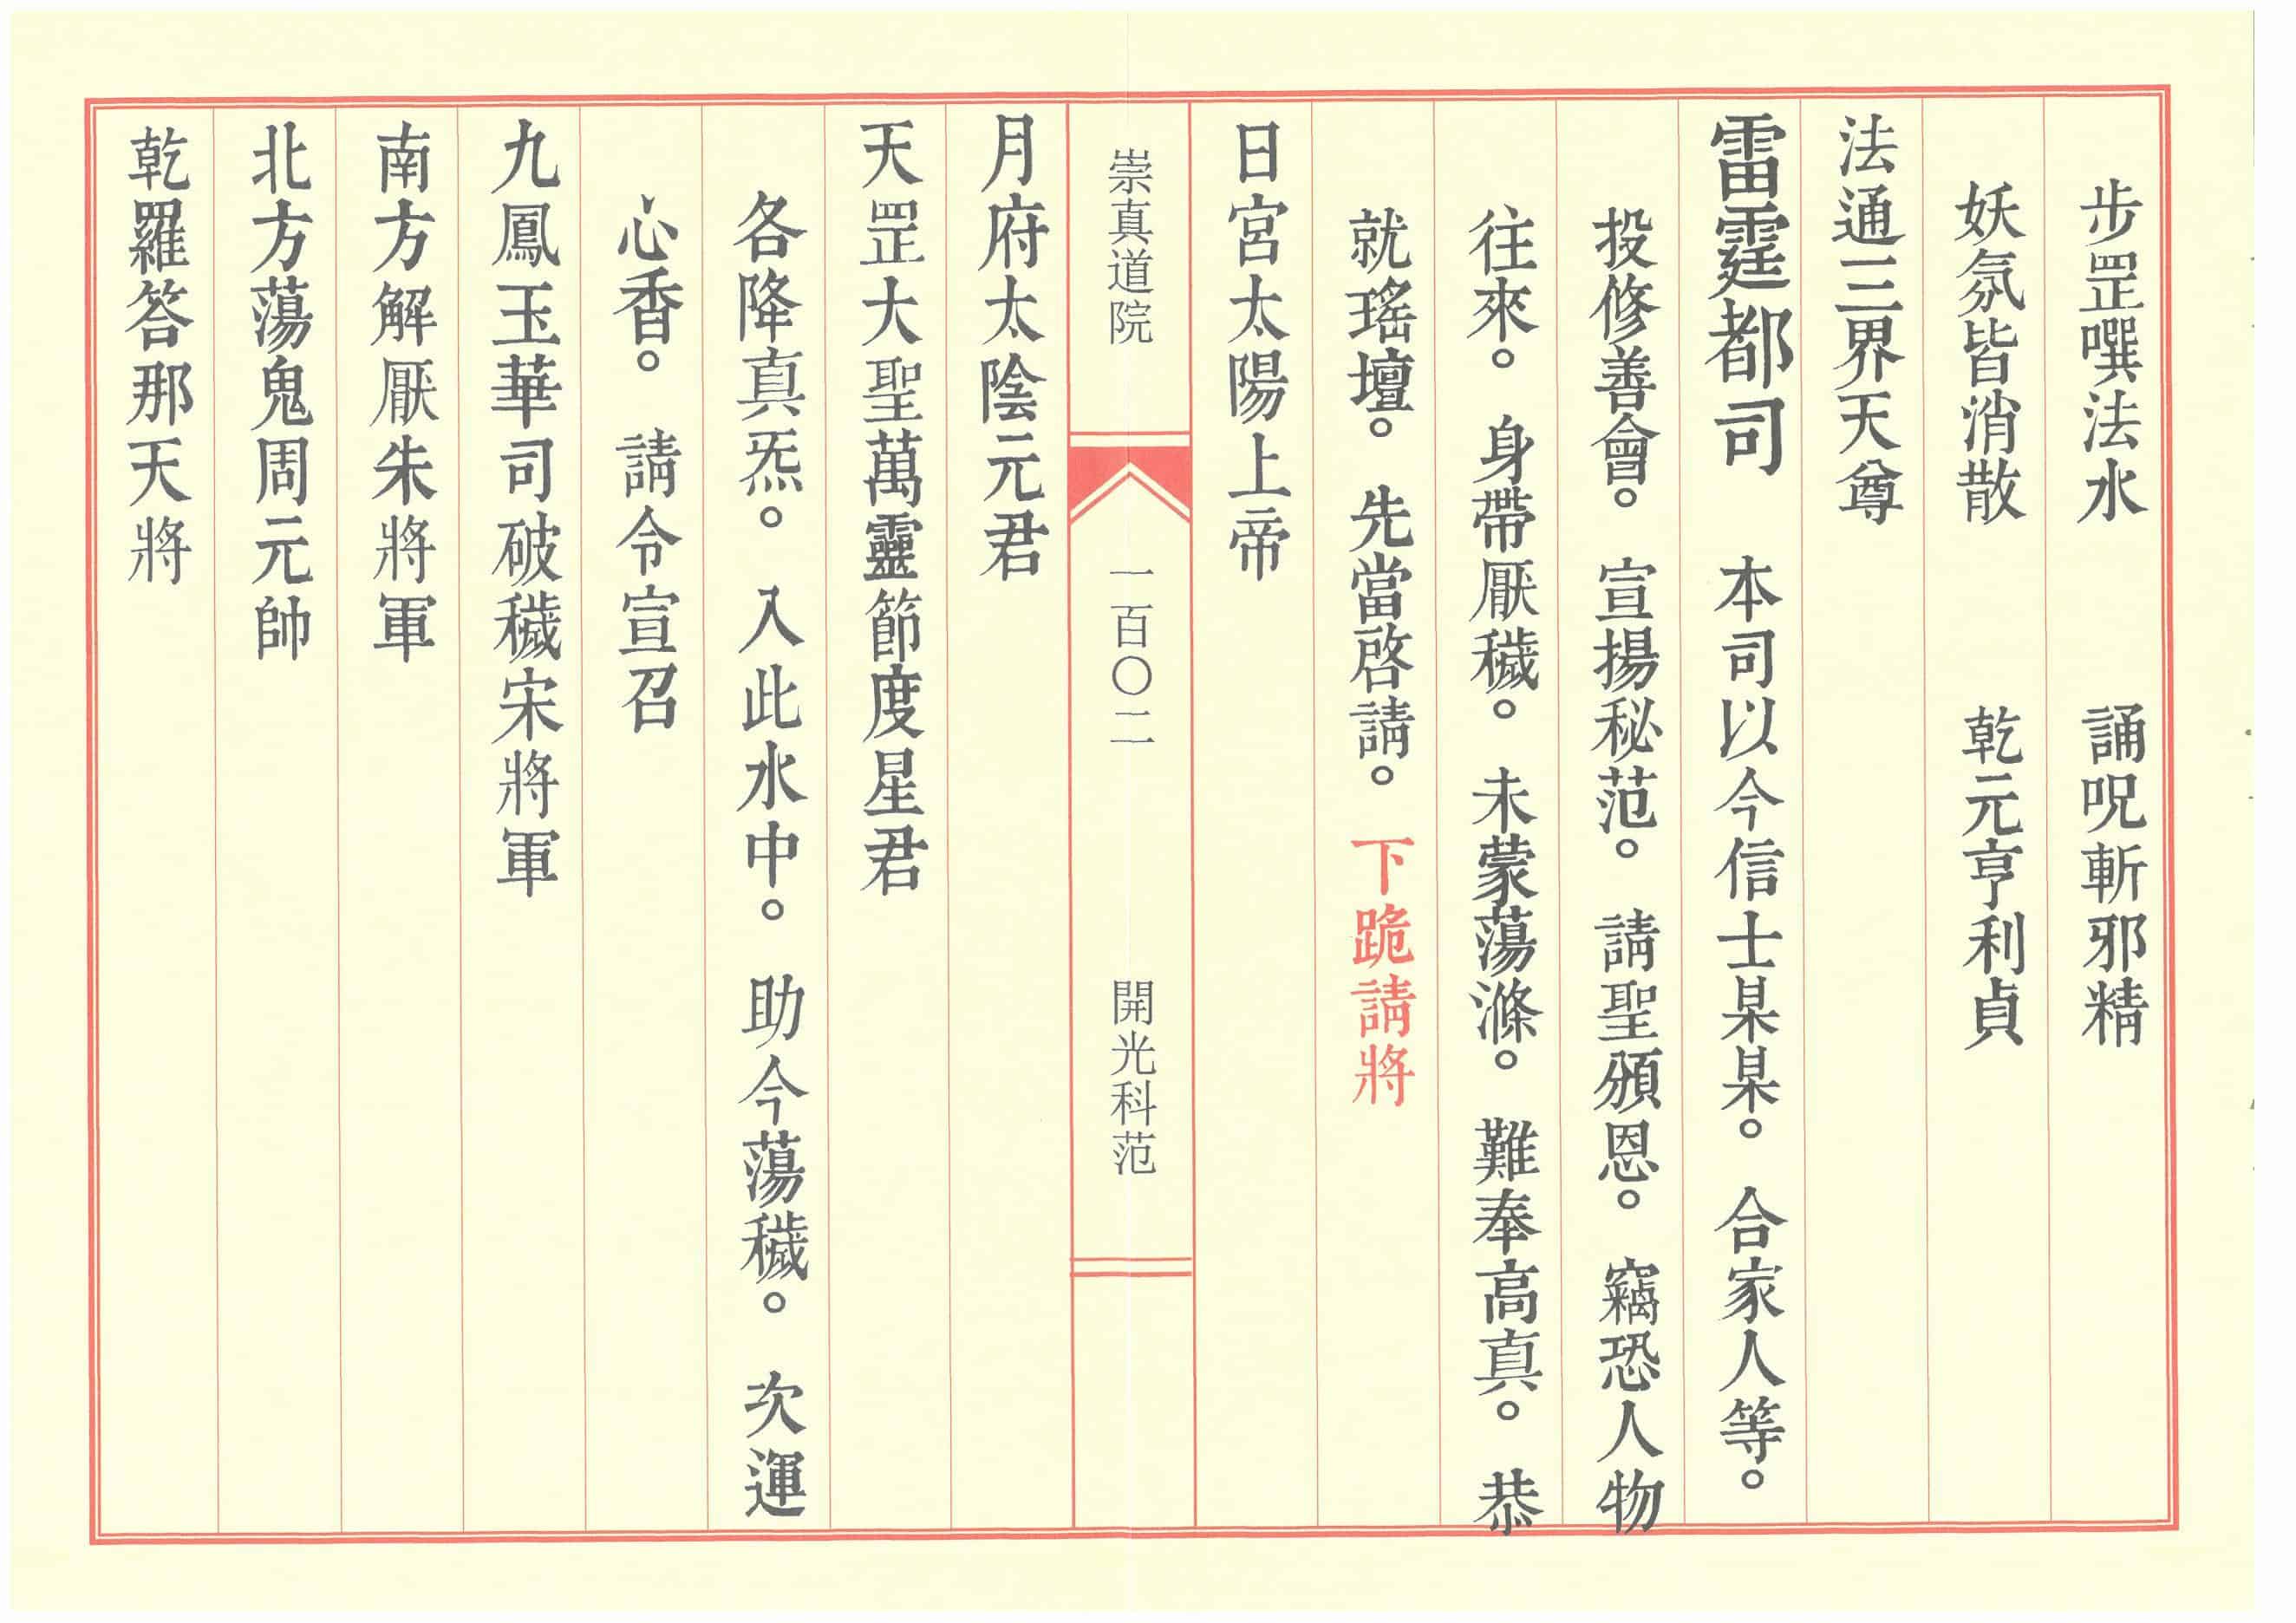 步罡噀法水　誦呪斬邪精
妖氛皆消散　乾元亨利貞
法通三界天尊
雷霆都司　本司以今信士某某。合家人等。
投修善會。宣揚秘范。請聖頒恩。竊恐人物
往來。身帶厭穢。未蒙蕩滌。難奉高真。恭
就瑤壇。先當啓請。下跪請將
日宮太陽上帝
崇真道院　一百〇二　開光科范
月府太陰元君
天罡大聖萬靈節度星君
各降真炁。入此水中。助今蕩穢。次運
心香。請令宣召
九鳳玉華司破穢宋將軍
南方解厭朱將軍
北方蕩鬼周元帥
乾羅答那天將